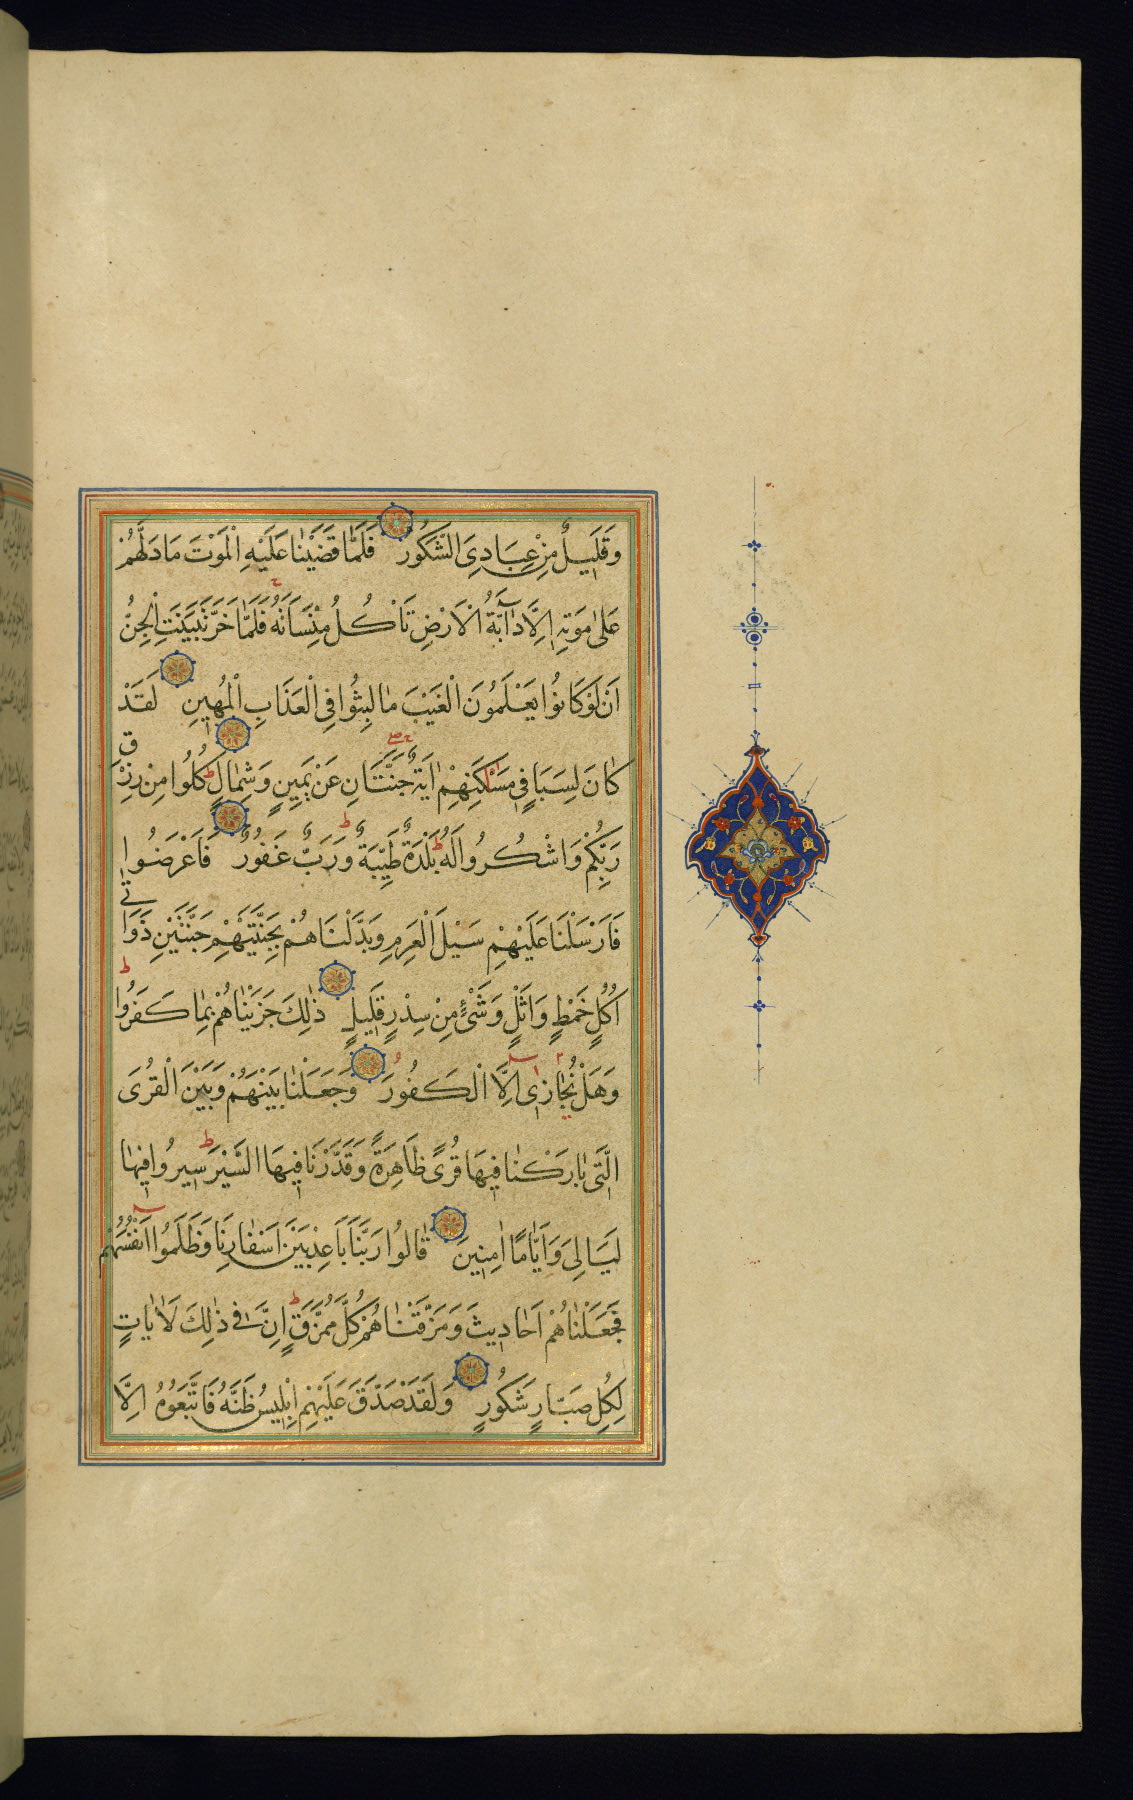 وَقَلِيلٌ مِنْ عِبَادِيَ الشَّكُورُ فَلَمَّا قَضَيْنَا عَلَيْهِ الْمَوْتَ مَا دَلَّهُمْ
عَلَىٰ مَوْتِهِ اِلَّا دَابَّةُ الْاَرْضِ تَأْكُلُ مِنْسَاَتَهُ فَلَمَّا خَرَّ تَبَيَّنَتِ الْجِنُّ
اَنْ لَوْ كَانُوا يَعْلَمُونَ الْغَيْبَ مَا لَبِثُوا فِي الْعَذَابِ الْمُهِينِ لَقَدْ
كَانَ لِسَبَاٍ فِي مَسْكَنِهِمْ اٰيَةٌ جَنَّتَانِ عَنْ يَمِينٍ وَشِمَالٍ كُلُوا مِنْ رِزْقِ
رَبِّكُمْ وَاشْكُرُوا لَهُ بَلْدَةٌ طَيِّبَةٌ وَرَبٌّ غَفُورٌ فَاَعْرَضُوا
فَاَرْسَلْنَا عَلَيْهِمْ سَيْلَ الْعَرِمِ وَبَدَّلْنَاهُمْ بِجَنَّتَيْهِمْ جَنَّتَيْنِ ذَوَاتَيْ
اُكُلٍ خَمْطٍ وَاَثْلٍ وَشَيْءٍ مِنْ سِدْرٍ قَلِيلٍ ذٰلِكَ جَزَيْنَاهُمْ بِمَا كَفَرُوا
وَهَلْ نُجَازِي اِلَّا الْكَفُورَ وَجَعَلْنَا بَيْنَهُمْ وَبَيْنَ الْقُرَى
الَّتِي بَارَكْنَا فِيهَا قُرًى ظَاهِرَةً وَقَدَّرْنَا فِيهَا السَّيْرَ سِيرُوا فِيهَا
لَيَالِيَ وَاَيَّامًا اٰمِنِينَ فَقَالُوا رَبَّنَا بَاعِدْ بَيْنَ اَسْفَارِنَا وَظَلَمُوا اَنْفُسَهُمْ
فَجَعَلْنَاهُمْ اَحَادِيثَ وَمَزَّقْنَاهُمْ كُلَّ مُمَزَّقٍ اِنَّ فِي ذٰلِكَ لَاٰيَاتٍ
لِكُلِّ صَبَّارٍ شَكُورٍ وَلَقَدْ صَدَّقَ عَلَيْهِمْ اِبْلِيسُ ظَنَّهُ فَاتَّبَعُوهُ اِلَّا